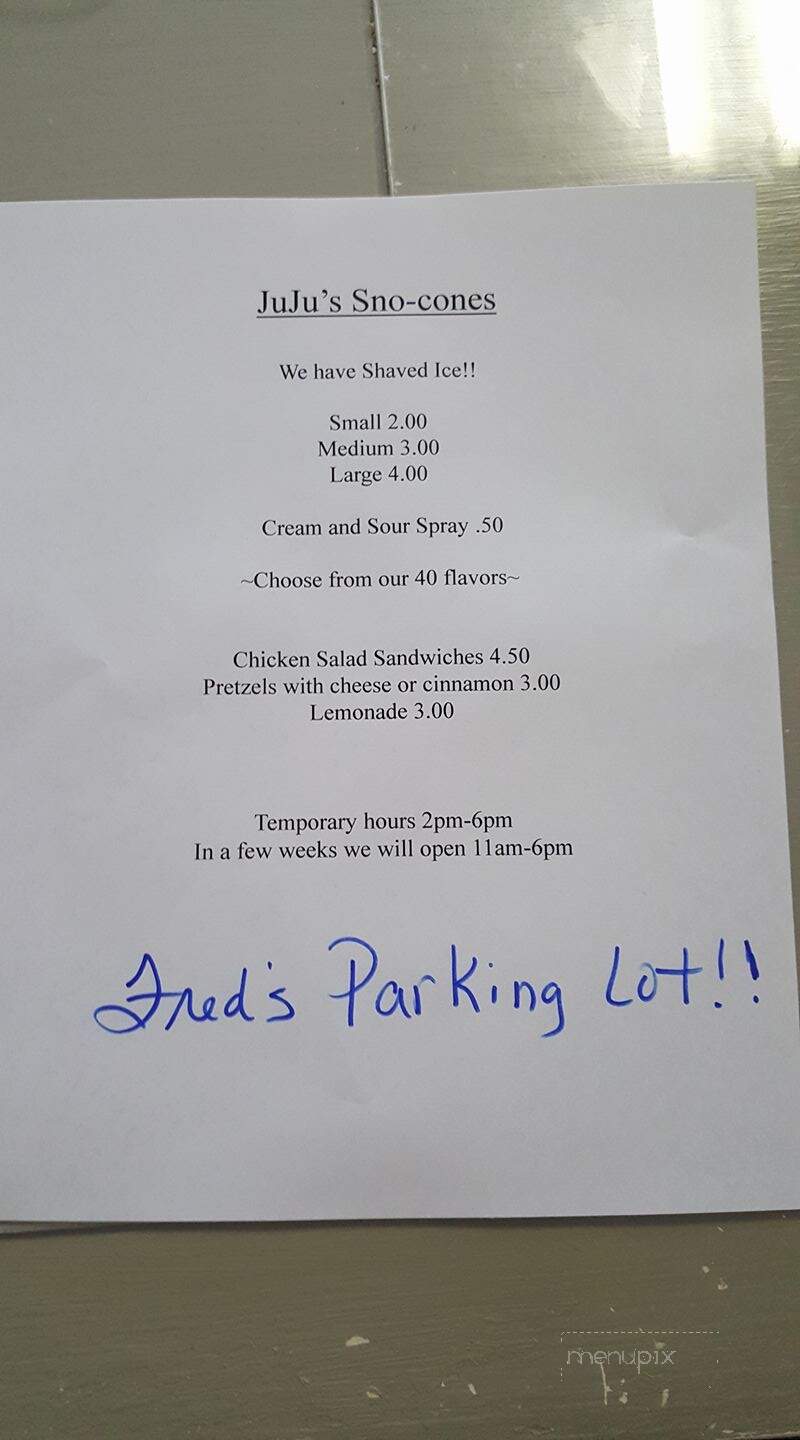 JuJu's Sno-cones
We have Shaved Ice!!
Small 2.00
Medium 3.00
Large 4.00
Cream and Sour Spray .50
~Choose from our 40 flavors~
Chicken Salad Sandwiches 4.50
Pretzels with cheese or cinnamon 3.00
Lemonade 3.00
Temporary hours 2pm-6pm
In a few weeks we will open 11am-6pm
Fred's Parking Lot!!
menupix